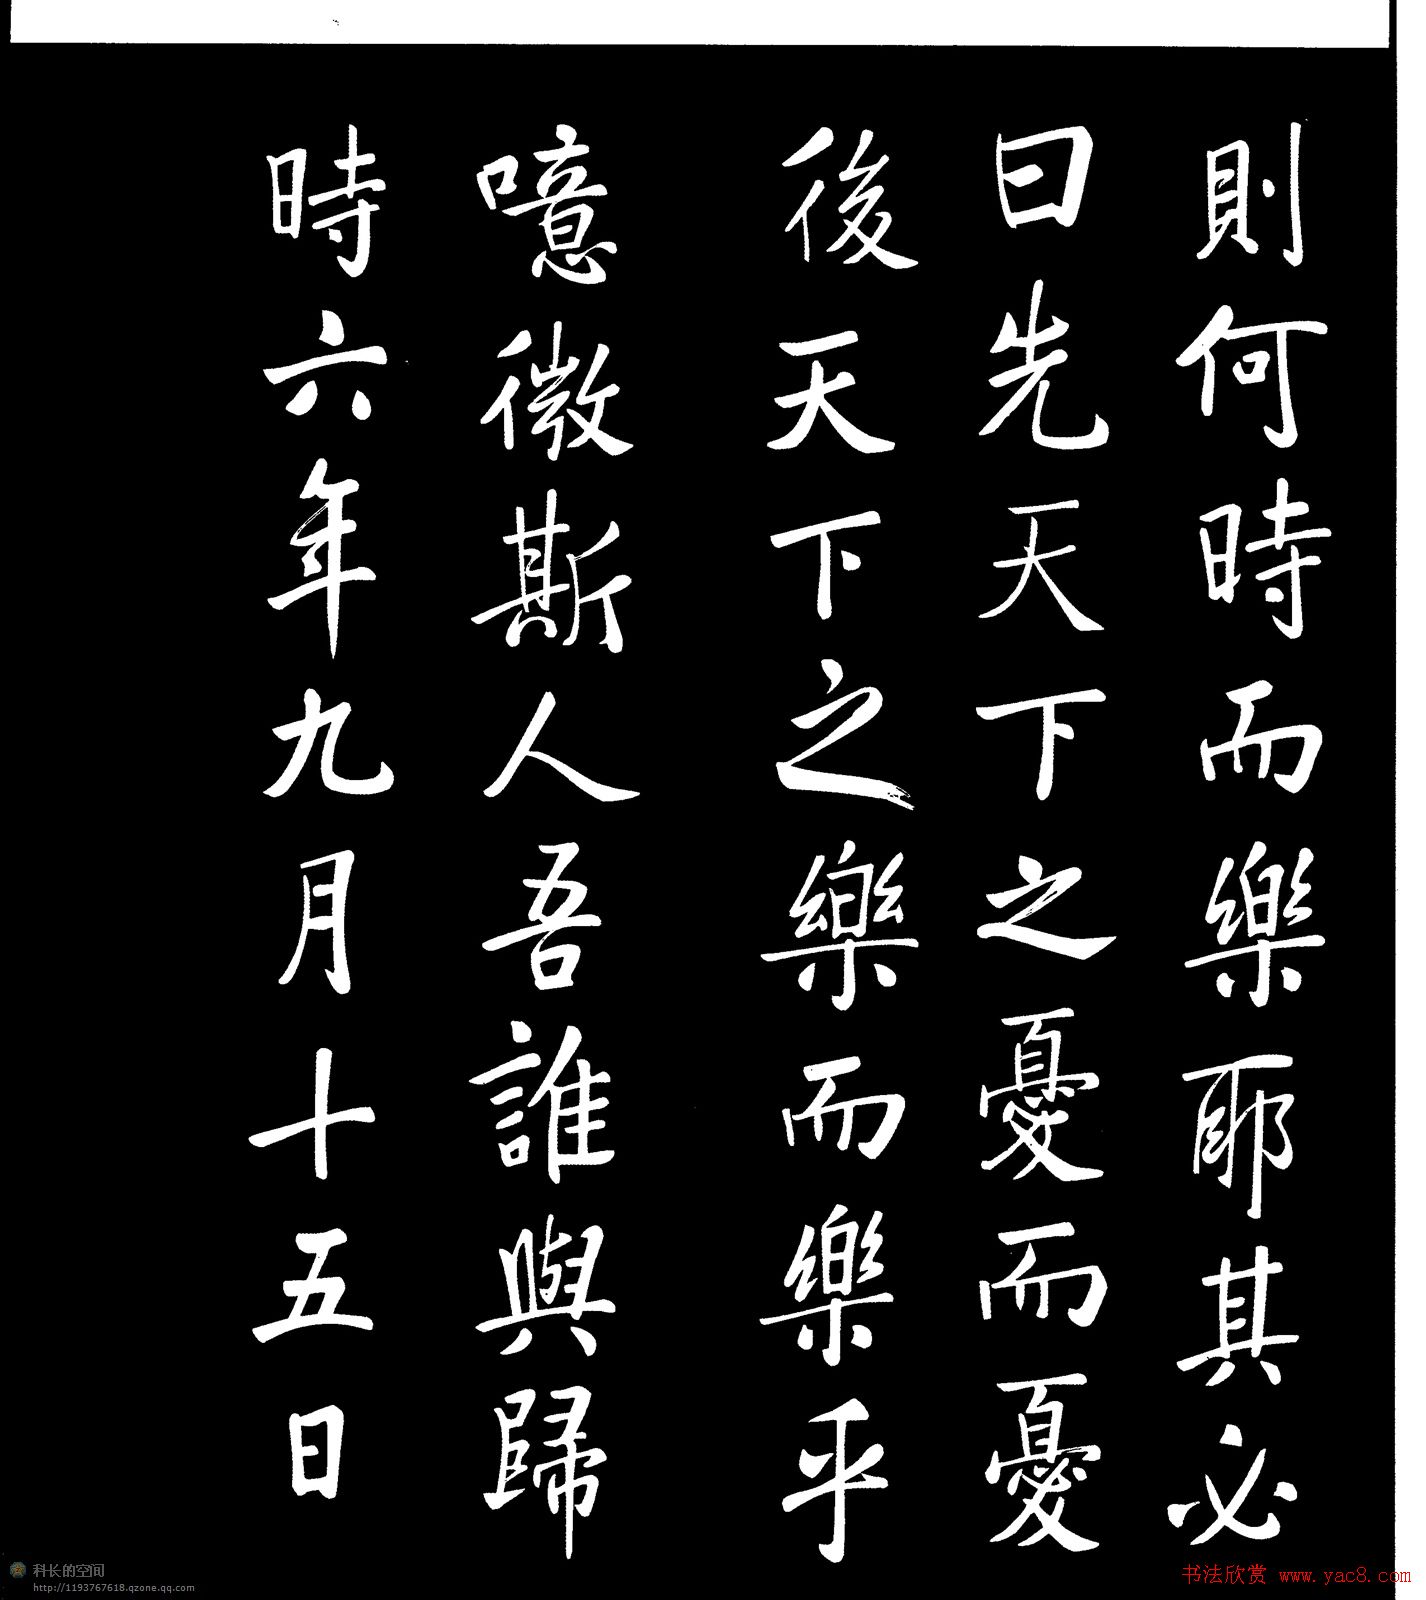 則何時而樂耶其必
曰先天下之憂而憂
後天下之樂而樂乎
噫微斯人吾誰與歸
時六年九月十五日
科长的空间
http://1193767618.qzone.qq.com
书法欣赏 www.yac8.com